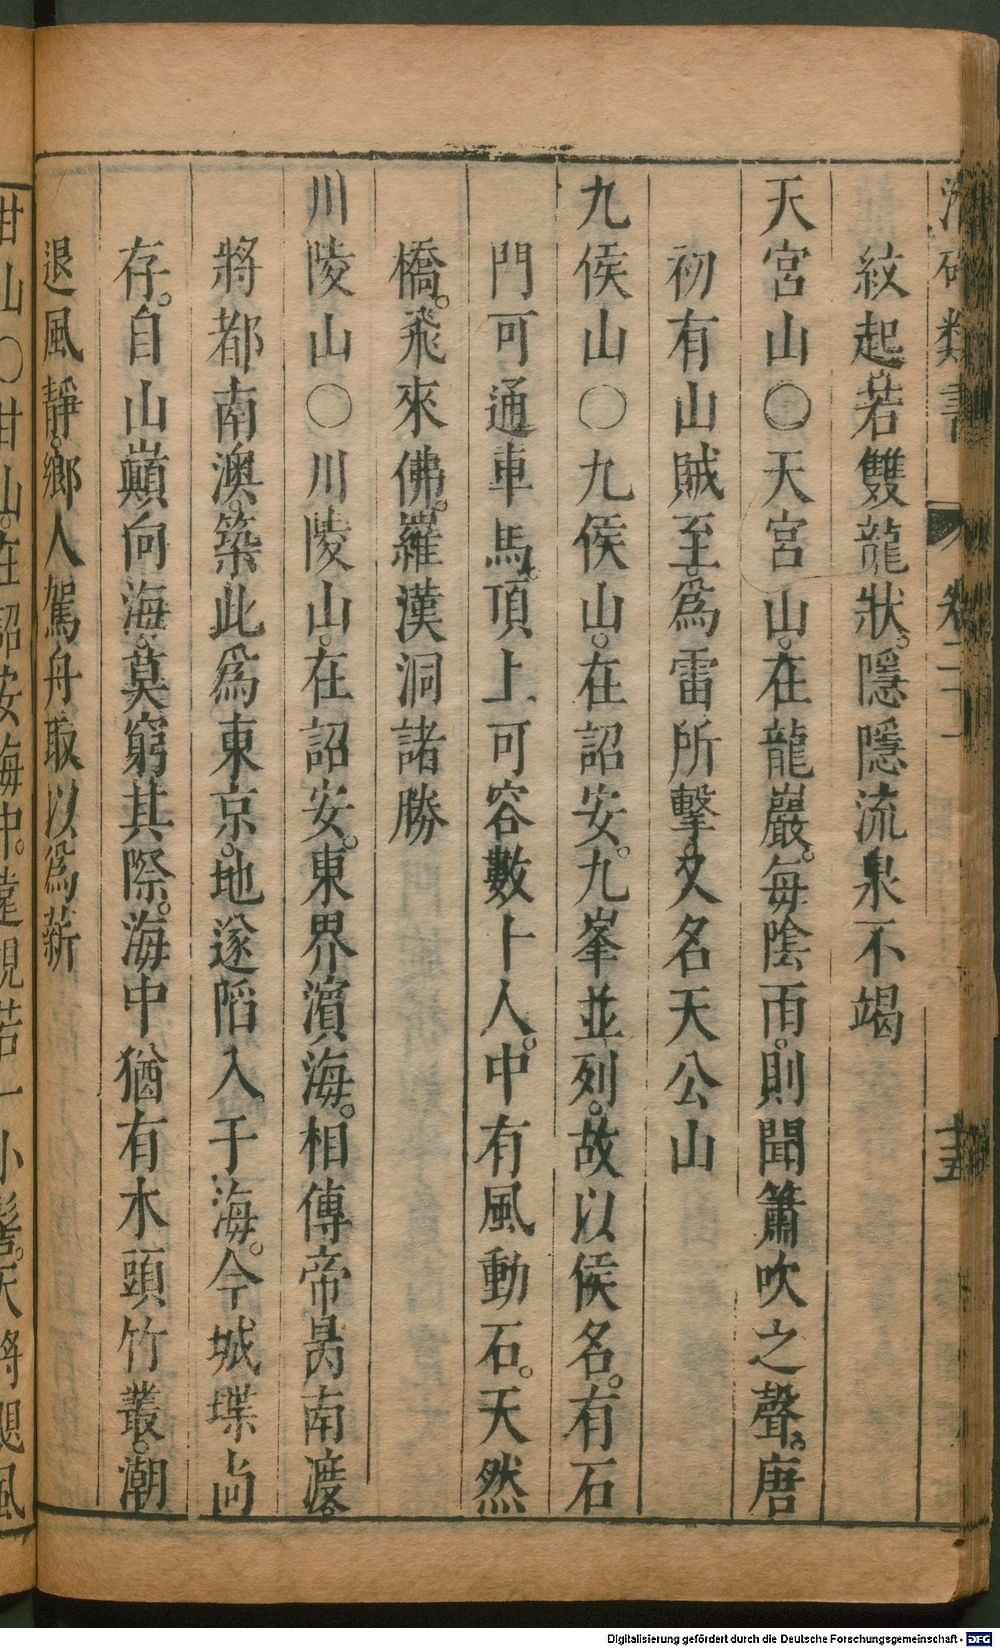 紋起若雙龍狀。隱隱流泉不竭
天宮山〇天宮山。在龍巖。每陰雨。則聞簫吹之聲。唐
初有山賊至。爲雷所擊。又名天公山
九侯山〇九侯山。在詔安。九峯並列。故以侯名。有石
門可通車馬。頂上可容數十人。中有風動石。天然
橋。飛來佛。羅漢洞諸勝
川陵山〇川陵山。在詔安。東界濱海。相傳帝昺南渡。
將都南澳。築此爲東京。地遂陷入于海。今城堞尚
存。自山巔向海。莫窮其際。海中猶有木頭竹叢。潮
退風靜。鄉人駕舟取以爲薪
甘山〇甘山。在詔安海中。遠視若一小髻。天將颶風
Digitalisierung gefördert durch die Deutsche Forschungsgemeinschaft - DFG